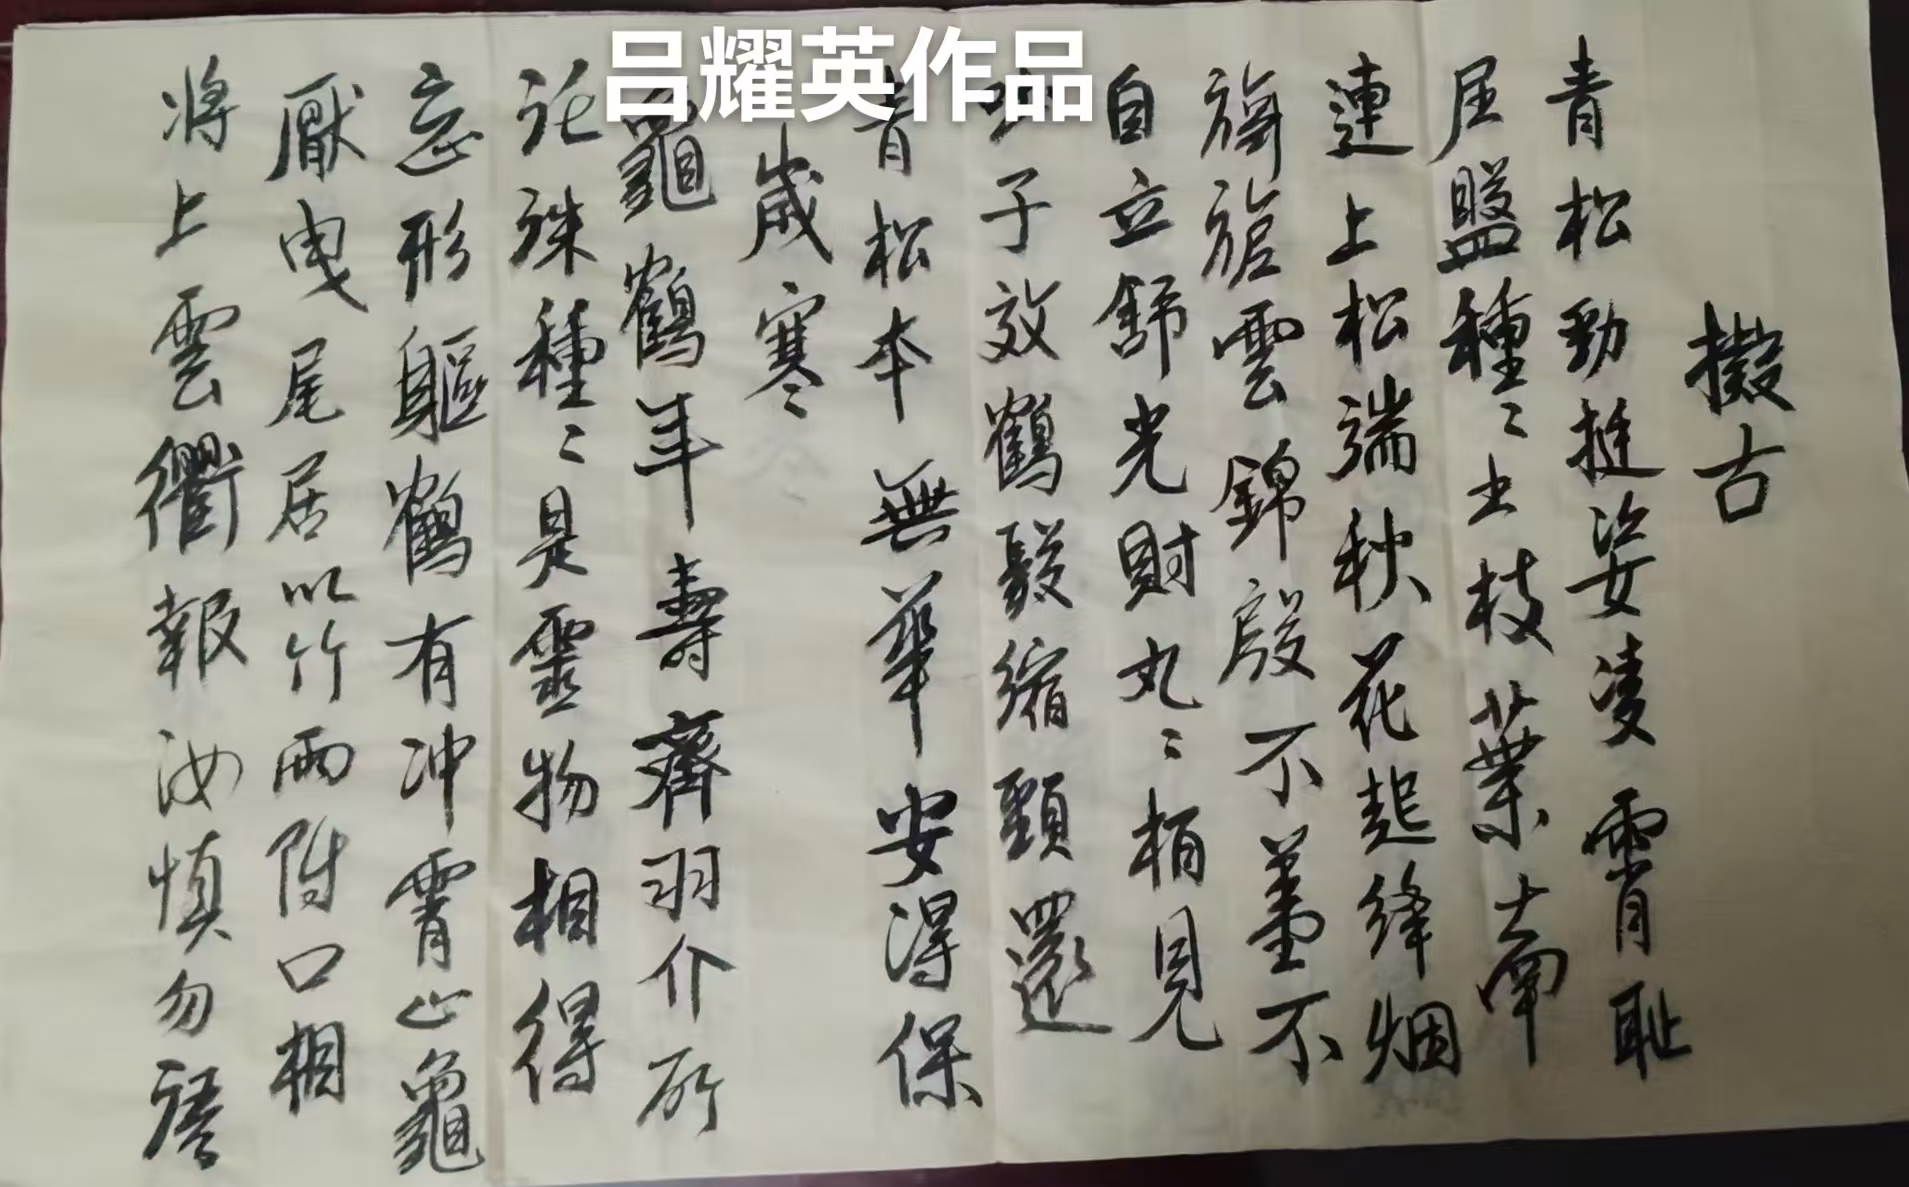 吕耀英作品
擬古
青松勁挺姿凌霄恥
屈盤種〻出枝葉牽
連上松端秋花起絳烟
旖旎雲錦殷不羞不
自立舒光射丸〻柏見
吐子效鶴疑縮頸還
青松本無華安得保
歲寒
龜鶴年壽齊羽介所
託殊種〻是靈物相得
忘形軀鶴有冲霄心龜
厭曳尾居以竹兩附口相
將上雲衢報汝慎勿語